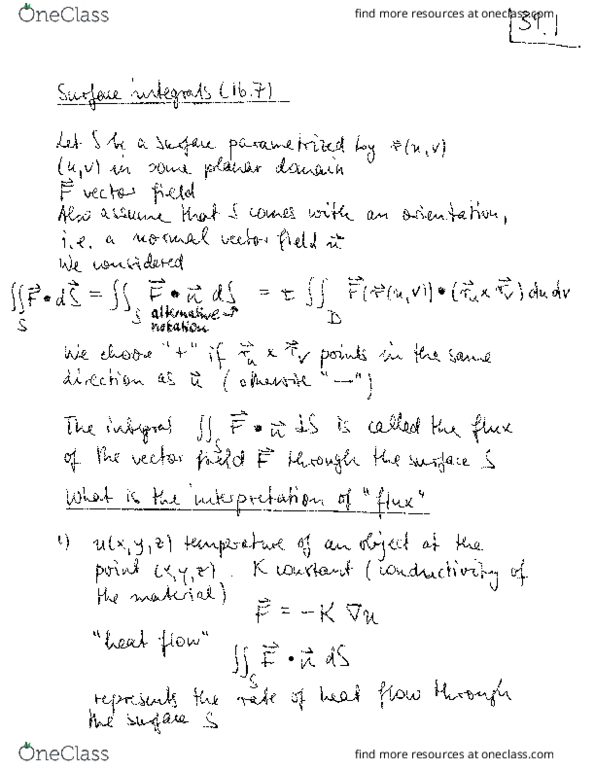 OneClass
find more resources at oneclass.com
39.1
Surface integrals (16.7)
Let S be a surface parametrized by r⃗(u,v)
(u,v) in some planar domain
F⃗ vector field
Also assume that S comes with an orientation,
i.e. a normal vector field n⃗
We considered
∬_S F⃗ • dS⃗ = ∬_S F⃗ • n⃗ dS = ± ∬_D F⃗(r⃗(u,v)) • (r⃗_u x r⃗_v) du dv
alternative →
notation
We choose "+" if r⃗_u x r⃗_v points in the same
direction as n⃗ (otherwise "−")
The integral ∬_S F⃗ • n⃗ dS is called the flux
of the vector field F⃗ through the surface S
What is the interpretation of "flux"
1) u(x,y,z) temperature of an object at the
point (x,y,z). K constant (conductivity of
the material)
F⃗ = −K ∇u
"heat flow"
∬_S F⃗ • n⃗ dS
represents the rate of heat flow through
the surface S
OneClass
find more resources at oneclass.com